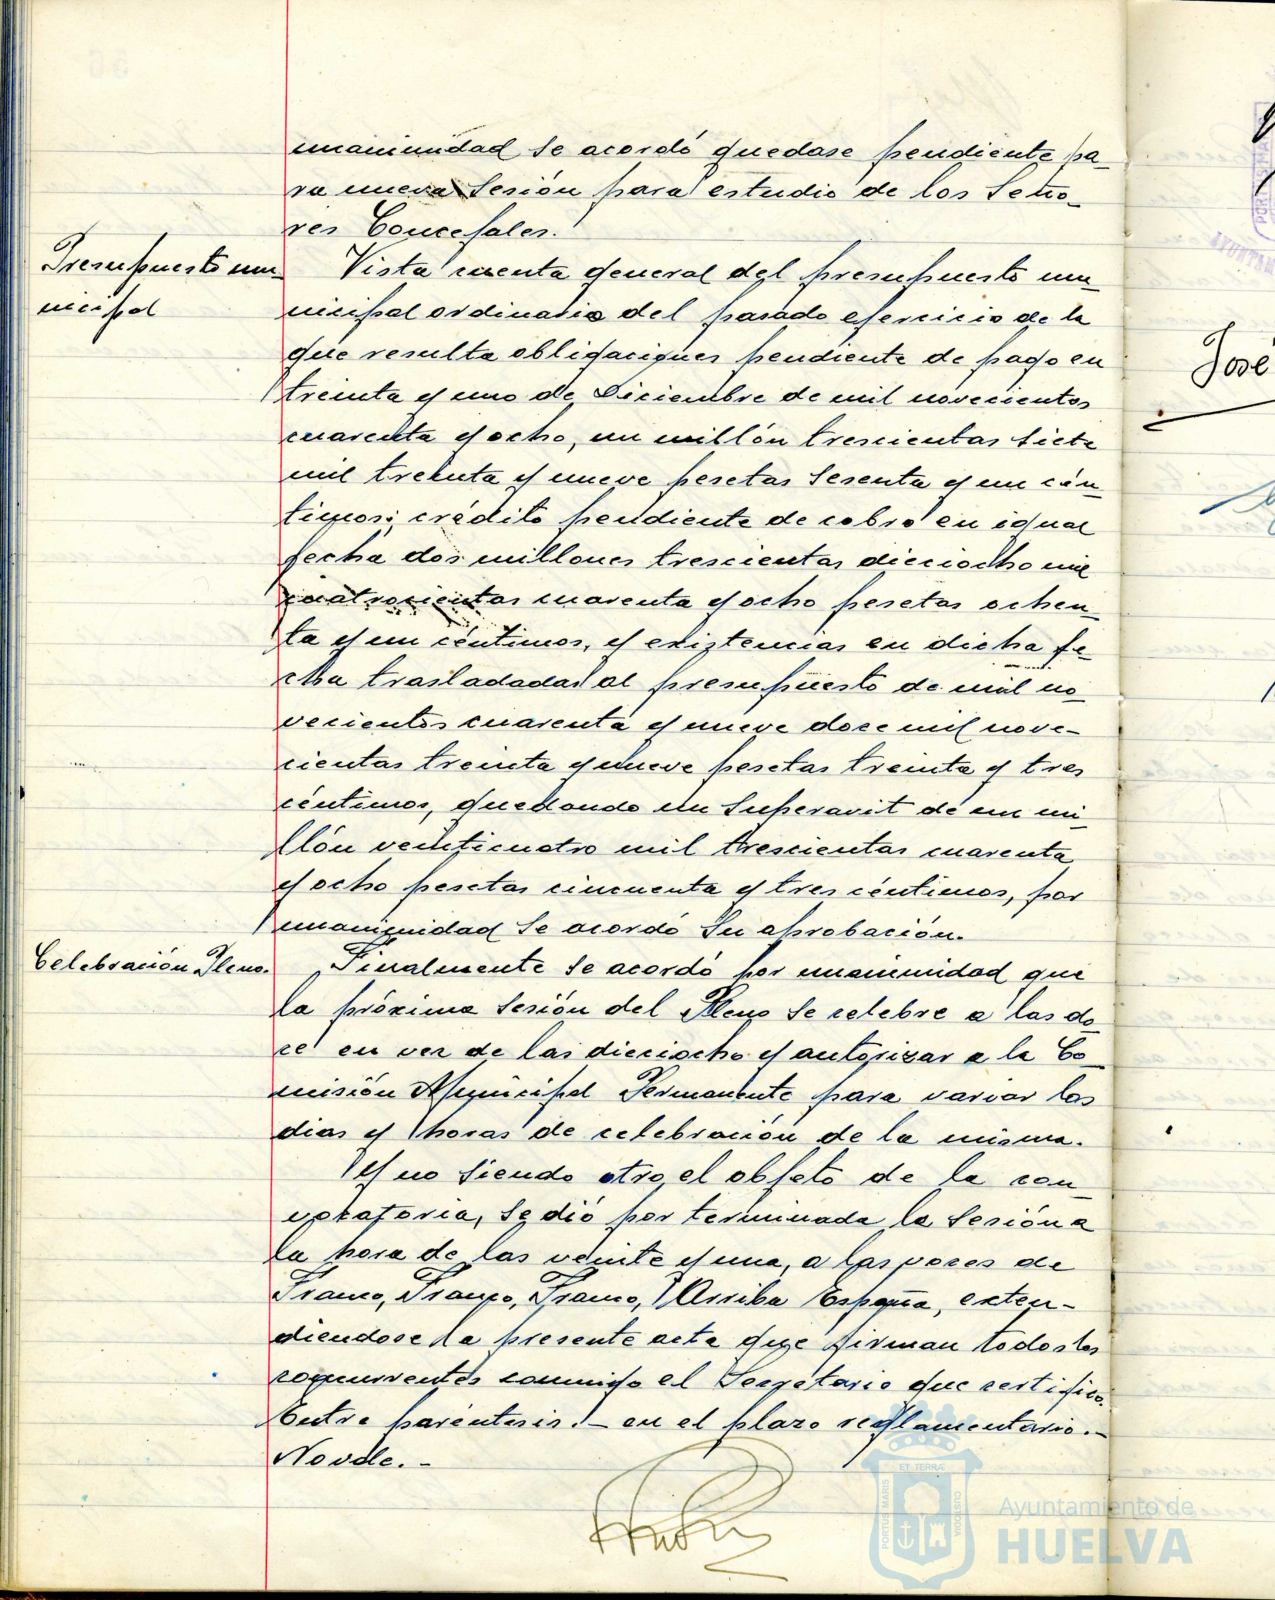 unanimidad se acordó quedase pendiente pa-
ra nueva sesión para estudio de los Seño-
res Concejales.
Presupuesto mu-
nicipal
Vista cuenta general del presupuesto mu-
nicipal ordinario del pasado ejercicio de la
que resulta obligaciones pendiente de pago en
treinta y uno de Diciembre de mil novecientos
cuarenta y ocho, un millón trescientas siete
mil treinta y nueve pesetas sesenta y un cén-
timos; crédito pendiente de cobro en igual
fecha dos millones trescientas dieciocho mil
cuatrocientas cuarenta y ocho pesetas ochen-
ta y un céntimos, y existencias en dicha fe-
cha trasladadas al presupuesto de mil no-
vecientos cuarenta y nueve doce mil nove-
cientas treinta y nueve pesetas treinta y tres
céntimos, quedando un superavit de un mi-
llón veinticuatro mil trescientas cuarenta
y ocho pesetas cincuenta y tres céntimos, por
unanimidad se acordó su aprobación.
Celebración Pleno.
Finalmente se acordó por unanimidad que
la próxima sesión del Pleno se celebre a las do-
ce en vez de las dieciocho y autorizar a la Co-
misión Municipal Permanente para variar los
dias y horas de celebración de la misma.
Y no siendo otro el objeto de la con-
vocatoria, se dió por terminada la sesión a
la hora de las veinte y una, a las voces de
Franco, Franco, Franco, ¡Arriba España, exten-
diendose la presente acta que firman todos los
concurrentes conmigo el Secretario que certifico.
Entre paréntesis.- en el plazo reglamentario.-
No vale.-
José
ET TERRÆ
PORTUS MARIS
CUSTODIA
Ayuntamiento de
HUELVA